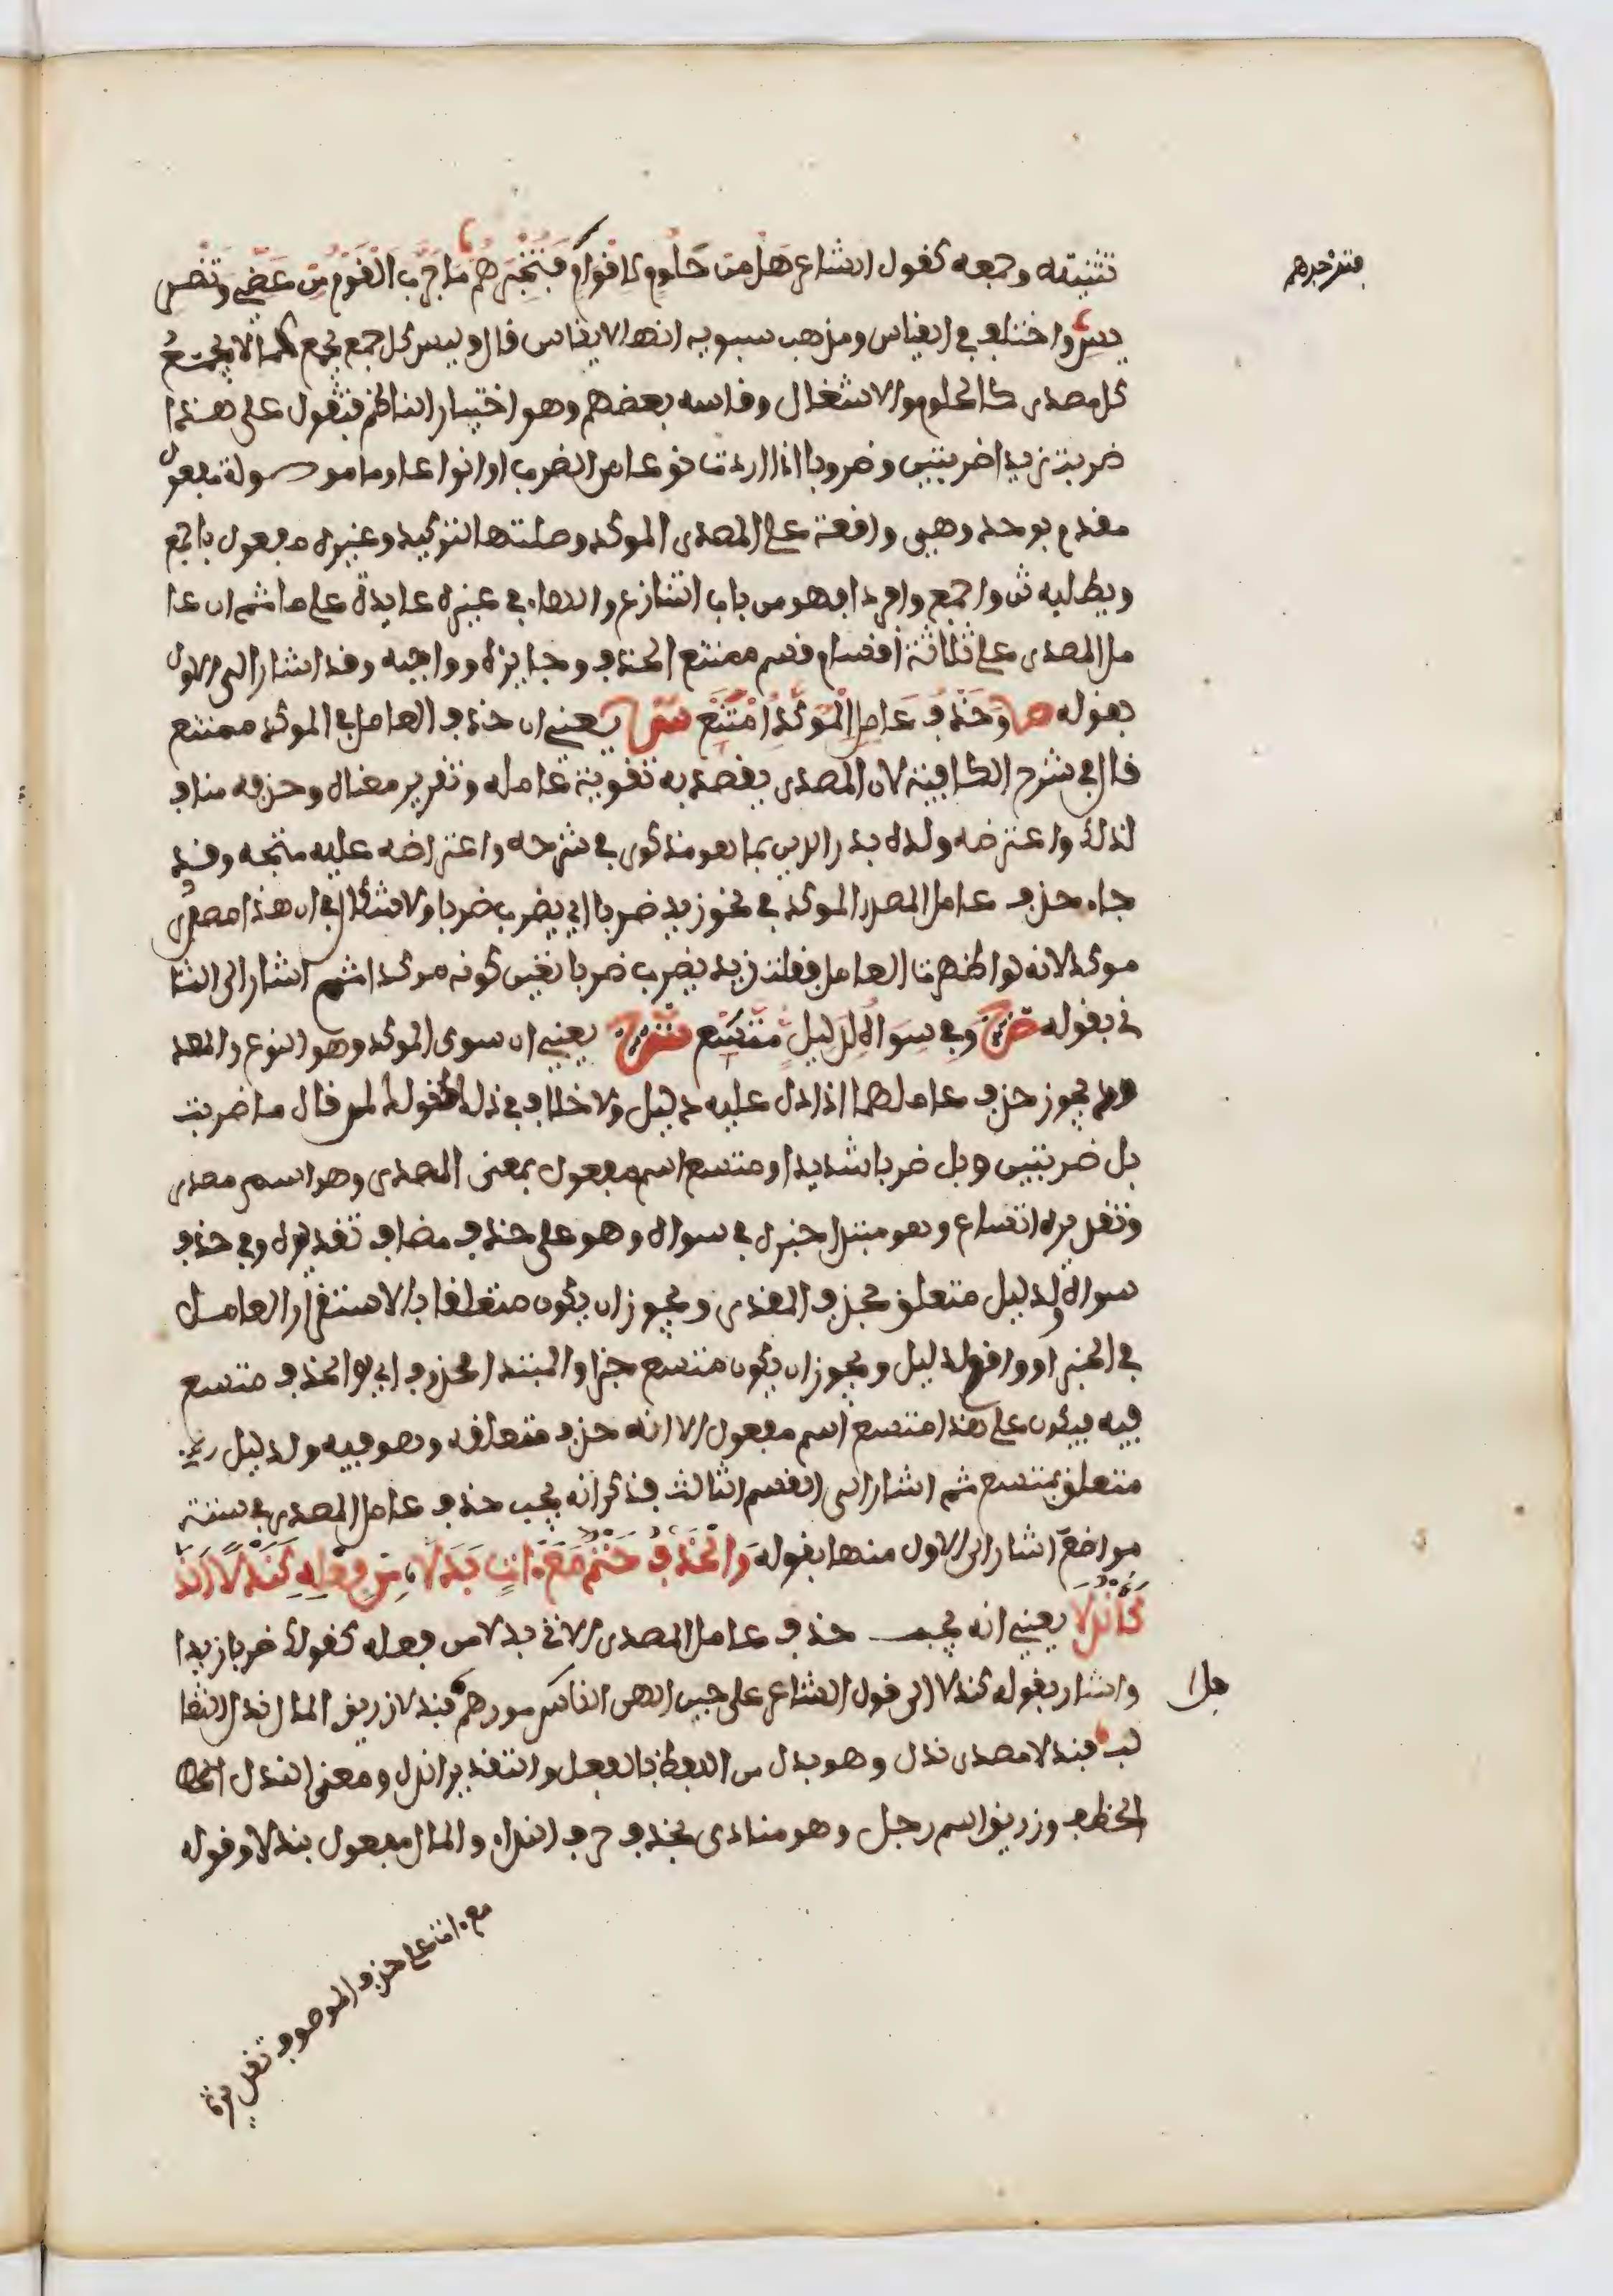 تثنيته وجمعه كقول الشاعر هل من حلوم لاقوام فتخبرهم ما جرب القوم من عضي وتضر
فتنذرهم
يس واختلف في القياس ومذهب سيبويه انها لا يقاس قال وليس كل جمع يجمع كما لا يجمع
كل مصدر كالحلوم والاشغال وقاسه بعضهم وهو اختيار الناظم فتقول على هذا
ضربت زيدا ضربتين وضروبا اذا اردت نوعا من الضرب او انواعا وما موصولة مفعول
مقدم بوحد وهي واقعة على المصدر الموكد وصلتها لتوكيد وغيره مفعول باجمع
ويطلبه ثن واجمع وافردا فهو من باب التنازع والهاء في غيره عايدة على ما ثم ان عا
مل المصدر على ثلاثة اقسام قسم ممتنع الحذف وجايزه وواجبه وقد اشار الى الاول
بقوله ص وحذف عامل الموكد امتنع ش يعني ان حذف العامل في الموكد ممتنع
قال في شرح الكافية لان المصدر يقصد به تقوية عامله وتقرير معناه وحذفه مناف
لذلك واعترضه ولده بدر الدين بما هو مذكور في شرحه واعتراضه عليه متجه وقد
جاء حذف عامل المصدر الموكد في نحو زيد ضربا اي يضرب ضربا ولا شك في ان هذا مصدر
موكد لانه لو اظهرت العامل فقلت زيد يضرب ضربا تعين كونه موكدا ثم اشار الى الثا
ني بقوله ص وفي سواه لدليل متسع ش يعني ان سوى الموكد وهو النوع والعد
ود يجوز حذف عاملهما اذا دل عليه دليل ولا خلاف في ذلك كقولك لمن قال ما ضربت
بل ضربتين وبل ضربا شديدا ومتسع اسم مفعول بمعنى المصدر وهو اسم مصدر
وتقديره اتساع وهو مبتدا خبره في سواه وهو على حذف مضاف تقديره وفي حذف
سواه ولدليل متعلق بحذف المقدر ويجوز ان يكون متعلقا بالاستقرار العامل
في الخبر او واقع لدليل ويجوز ان يكون متسع خبرا والمبتدا محذوف اي والحذف متسع
فيه فيكون على هذا متسع اسم مفعول الا انه حذف متعلقه وهو فيه ولدليل
متعلق بمتسع ثم اشار الى القسم الثالث فذكر انه يجب حذف عامل المصدر في ستة
مواضع اشار الى الاول منها بقوله والحذف حتم مع ات بدلا من فعله كندلا الذ
كاندلا يعني انه يجب حذف عامل المصدر الاتي بدلا من فعله كقولك ضربا زيدا
واشار بقوله كندلا الى قول الشاعر على حين الهى الناس امورهم فندلا زريق المال ندل الثعا
جل
لب فندلا مصدر ندل وهو بدل من اللفظ بالفعل والتقدير اندل ومعنى الندل
الخطف وزريق اسم رجل وهو منادى بحذف حرف النداء والمال مفعول بندلا وقوله
مع امتناع حذف الموصوف